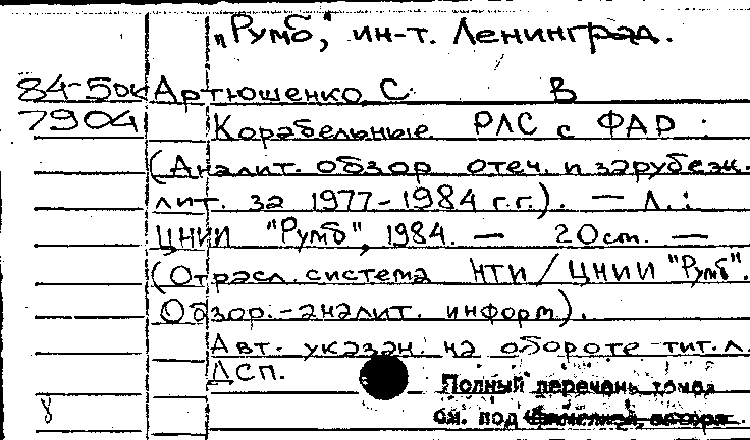 „Румб", ин-т. Ленинград.
84-5ок Артюшенко, С. В
7904 Корабельные РЛС с ФАР :
(Аналит. обзор отеч. и зарубеж.
лит. за 1977-1984 г.г.). — Л. :
ЦНИИ "Румб", 1984. — 20 см. —
(Отрасл. система НТИ / ЦНИИ "Румб".
Обзор.-аналит. информ.).
Авт. указан. на обороте тит. л.
ДСП.
Полный перечень томов
см. под